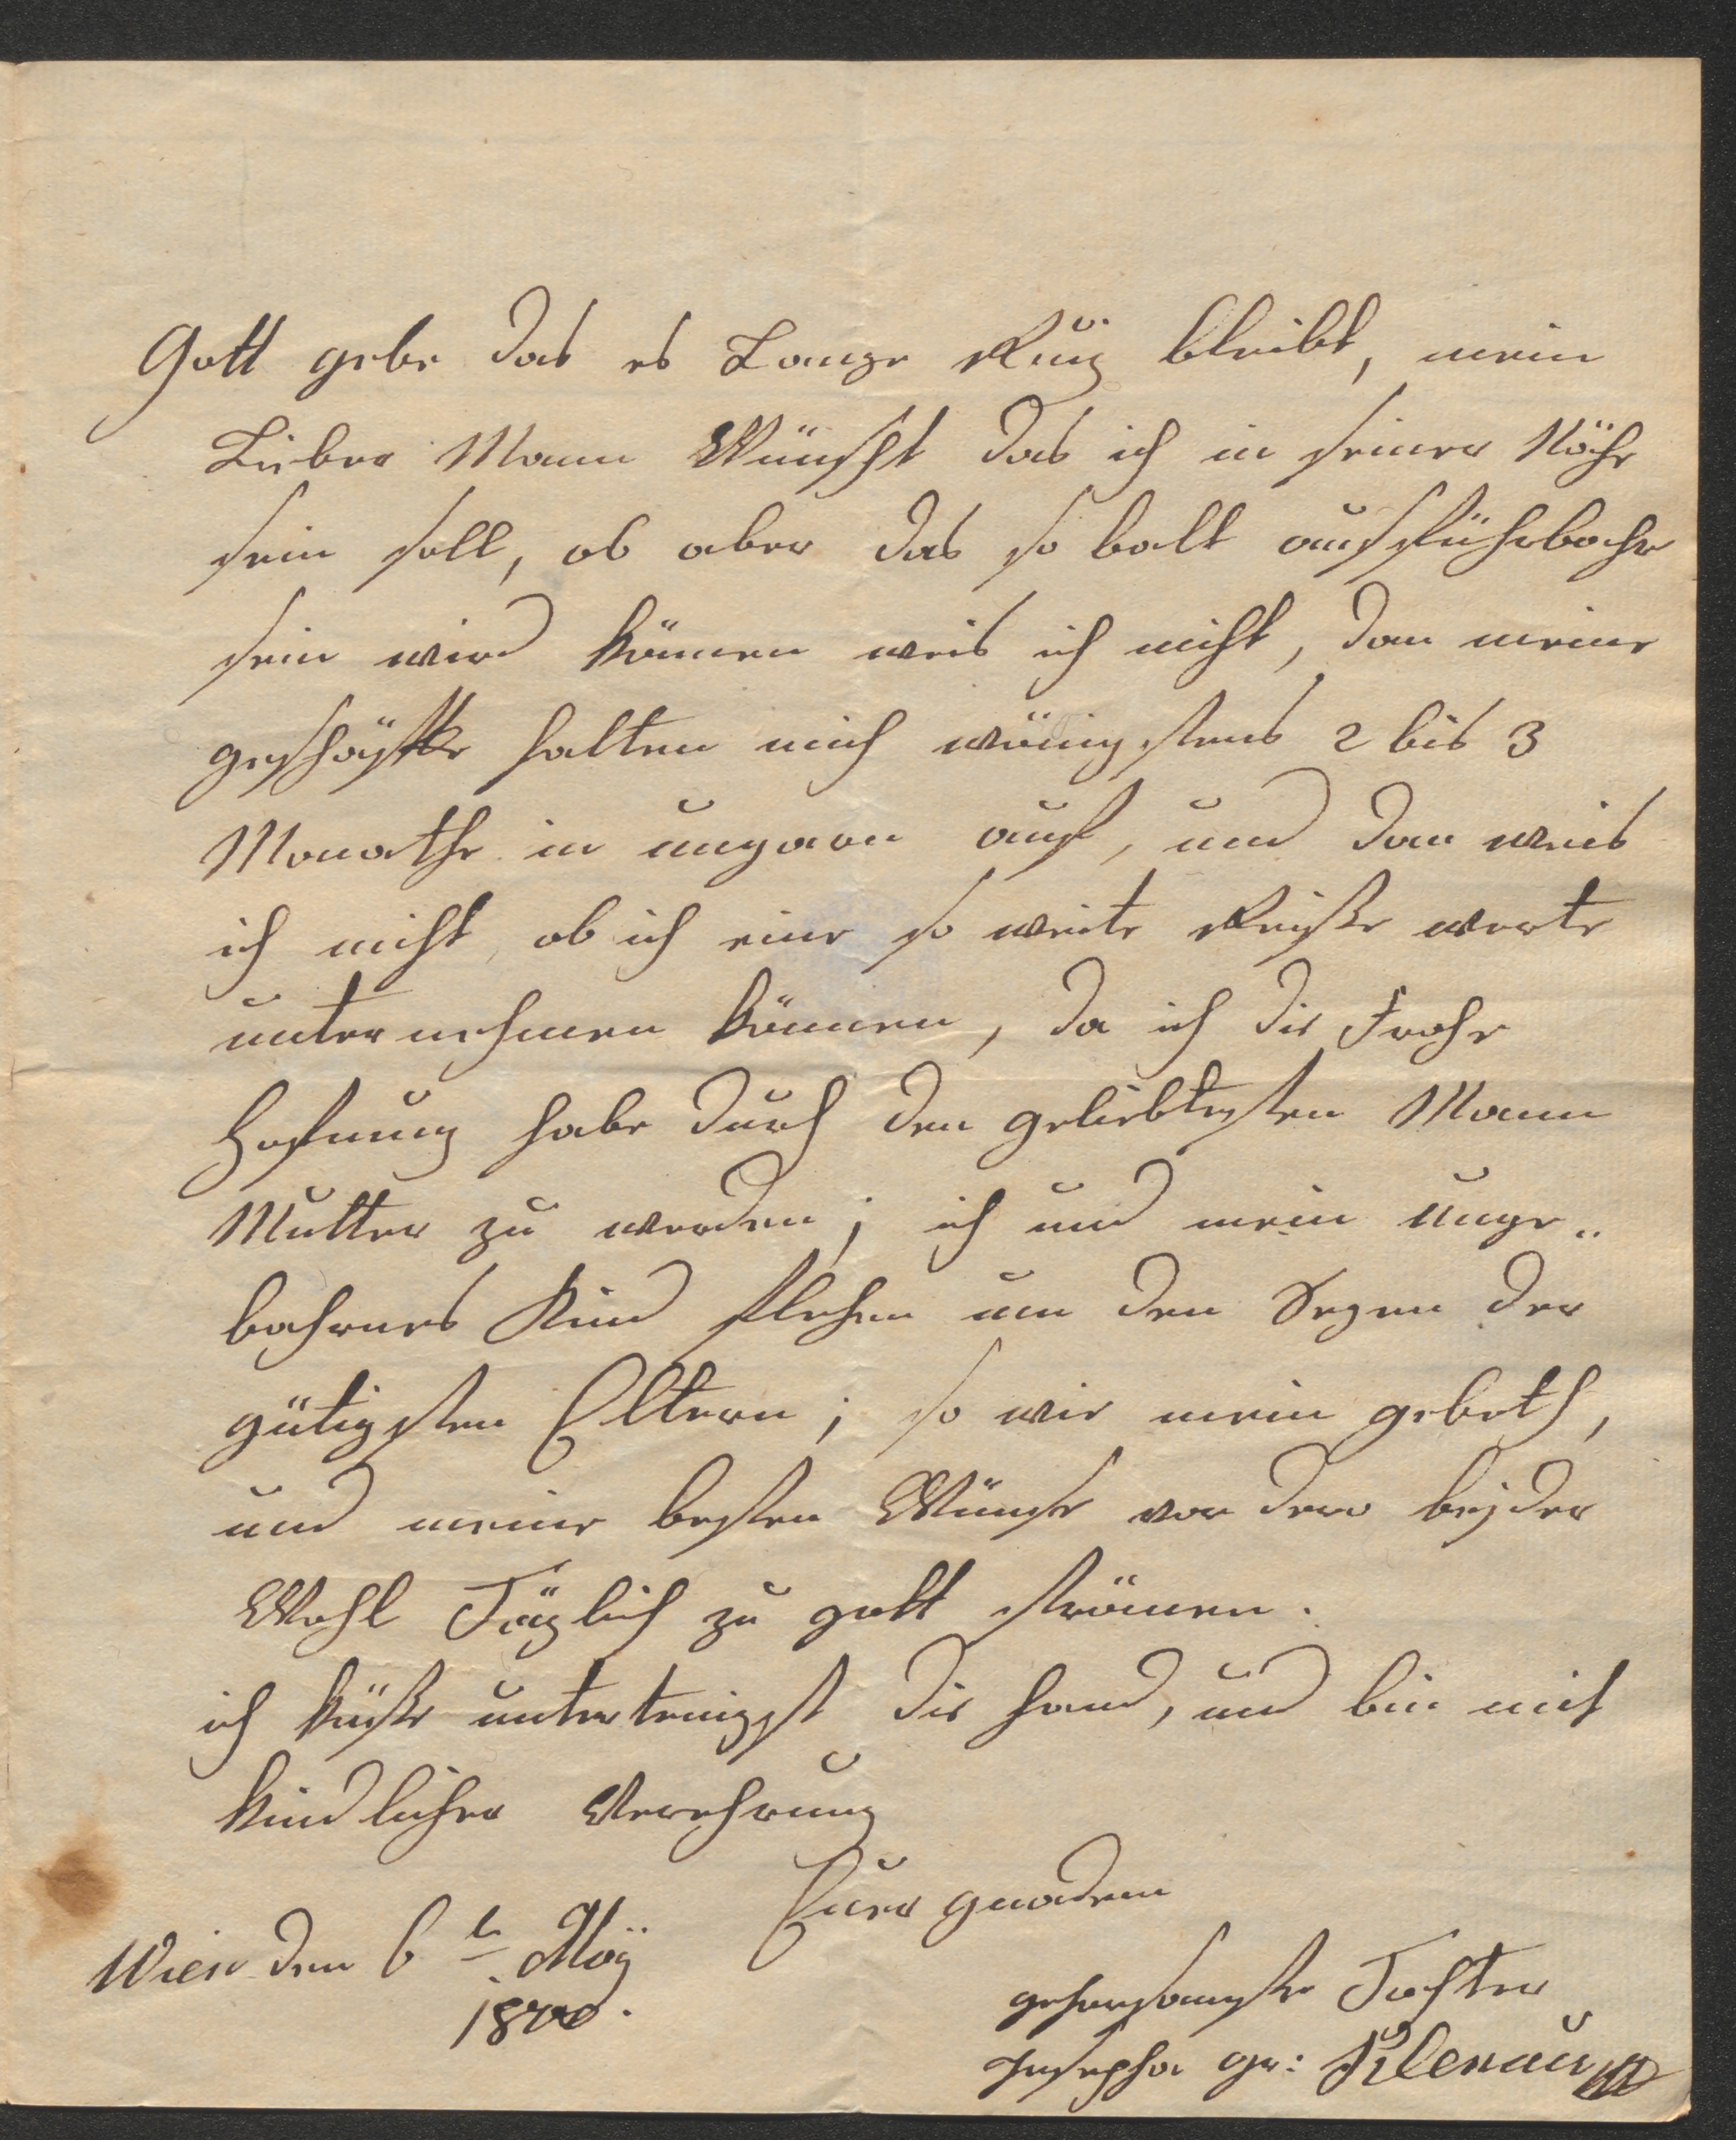 Gott gebe das es Lange Ruig bleibt, mein
Lieber Mann Wünscht das ich in seiner Nähe
sein soll, ob aber das so balt ausführbahr
sein wird können weis ich nicht, dan meine
geschäfte halten mich wänigstens 2 bis 3
Monathe in ungarn auf, und dan weis
ich nicht, ob ich eine so weite Reiße werte
unternehmen können, da ich die Frohe
Hofnung habe durch den geliebtesten Mann
Mutter zu werden; ich und mein unge„
bohrnes Kind flehen um den Segen der
gütigsten Eltern; so wie mein gebeth,
und meine besten Wünsche vor dero beyder
Wohl Täglich zu gott strömen.
ich küße untertenigst die hand, und bin mit
kindlicher Verehrung
Euer gnaden
Wien den 6t Maÿ
1800.
gehorsamste Tochter
Josepha gr: Klenau